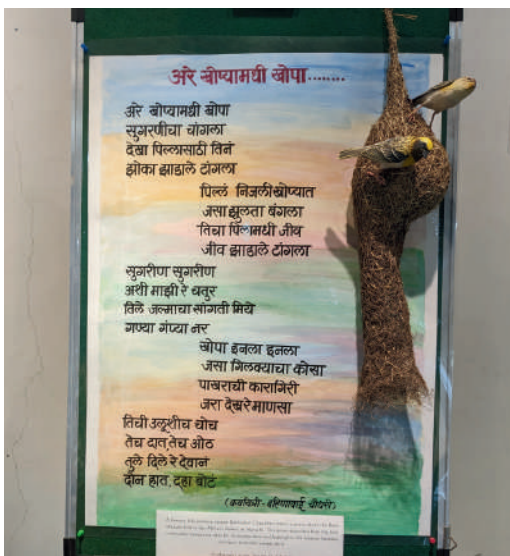 अरे खोप्यामधी खोपा........
अरे खोप्यामधी खोपा
सुगरणीचा चांगला
देखा पिल्लासाठी तिनं
झोका झाडाले टांगला
पिल्लं निजली खोप्यात
जसा झुलता बंगला
तिचा पिलामधी जीव
जीव झाडाले टांगला
सुगरीण सुगरीण
अशी माझी रे चतुर
तिले जल्माचा सांगती मिये
गण्या गंप्या नर
खोपा इनला इनला
जसा गिलक्याचा कोसा
पाखराची कारागिरी
जरा देखरे माणसा
तिची उलूशीच चोच
तेच दात, तेच ओठ
तुले दिले रे देवानं
दोन हात, दहा बोटं
(कवयित्री - बहिणाबाई चौधरी)